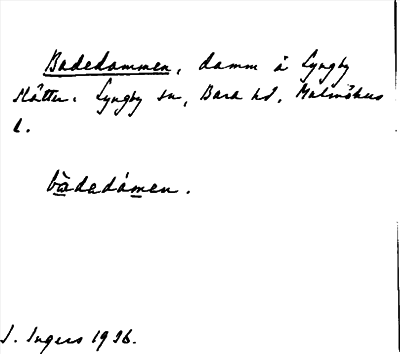 Badedammen, damm å Lyngby
slätter. Lyngby sn, Bara hd. Malmöhus
l.
bàdedámen.
I. Ingers 1936.